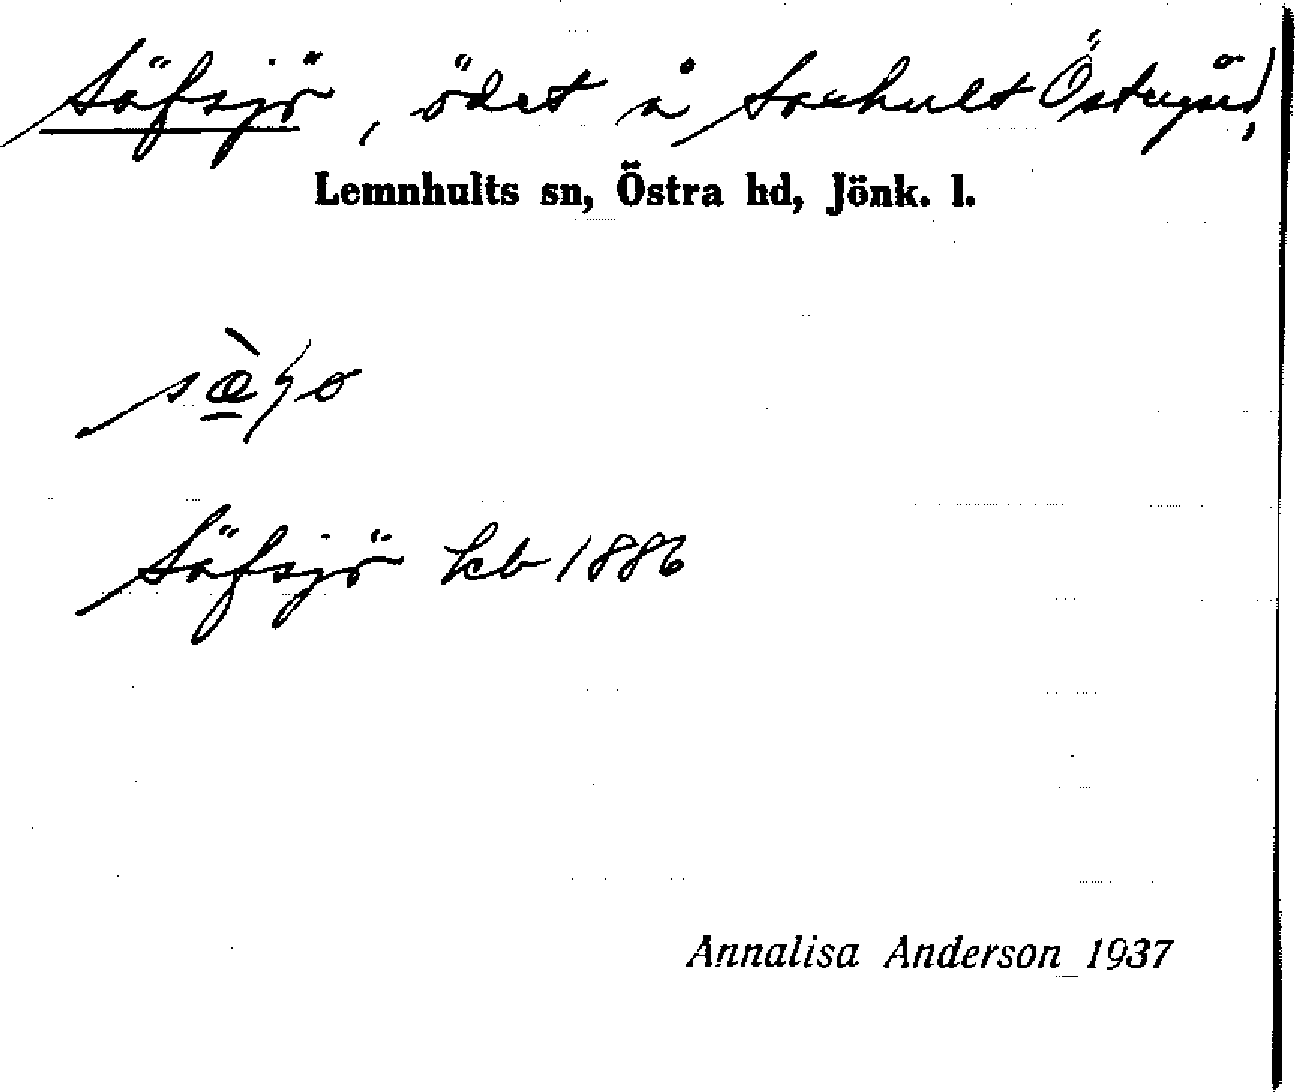 Säfsjö, ödet å Sarhult Östergård,
Lemnhults sn, Östra hd, Jönk. l.
Säfsjö kb 1886
Annalisa Anderson 1937